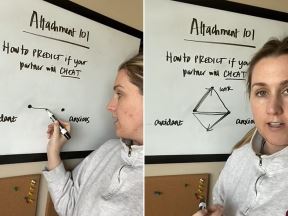 Attachment 101
HOW to PREDICT if your
partner will CHEAT
anxious
Attachment 101
HOW to PREDICT if your
partner will CHEAT
work
avoidant